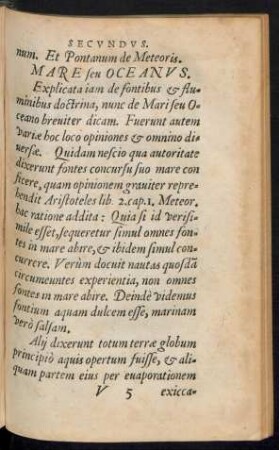 SECVNDVS.
num. Et Pontanum de Meteoris.
MARE seu OCEANVS.
Explicata iam de fontibus & flu-
minibus doctrina, nunc de Mari seu O-
ceano breuiter dicam. Fuerunt autem
variæ hoc loco opiniones & omnino di-
uersæ. Quidam nescio qua autoritate
dixerunt fontes concursu suo mare con
ficere, quam opinionem grauiter repre-
hendit Aristoteles lib. 2. cap. 1. Meteor.
hac ratione addita: Quia si id verisi-
mile esset, sequeretur simul omnes fon-
tes in mare abire, & ibidem simul con-
currere. Verùm docuit nautas quosdã
circumeuntes experientia, non omnes
fontes in mare abire. Deindè videmus
fontium aquam dulcem esse, marinam
verò salsam.
Alij dixerunt totum terræ globum
principiò aquis opertum fuisse, & ali-
quam partem eius per euaporationem
V 5 exicca-